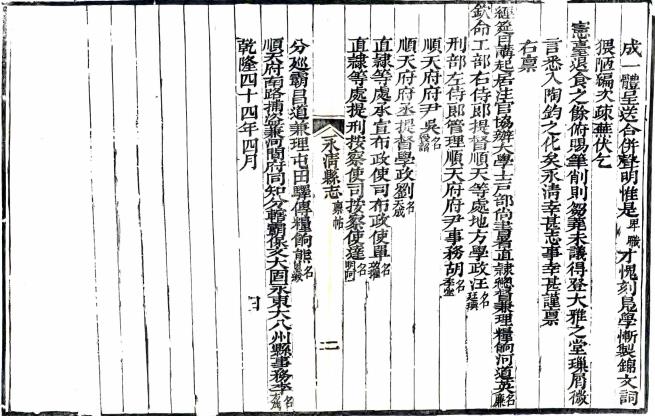 成一體呈送合併聲明惟是卑職才愧刻鳧學慚製錦文詞
猥陋編次疎蕪伏乞
憲臺退食之餘俯賜筆削則芻蕘末議得登大雅之堂璅屑微
言悉入陶鈞之化矣永淸幸甚志事幸甚謹稟
右稟
經筵日講起居注官協辦大學士戶部尚書署直隷總督兼理糧餉河道英名廉
欽命工部右侍郎提督順天等處地方學政汪名廷璵
刑部左侍郎管理順天府府尹事務胡名季堂
順天府府尹吳名
順天府府丞提督學政劉名天成
直隷等處承宣布政使司布政使單名功擢
直隷等處提刑按察使司按察使達名明阿
永淸縣志 稟帖 二
分巡霸昌道兼理屯田驛傳糧餉熊名
順天府南路捕盜兼河閒府同知分轄霸保文大固永東大八州縣事務李名
乾隆四十四年四月 日